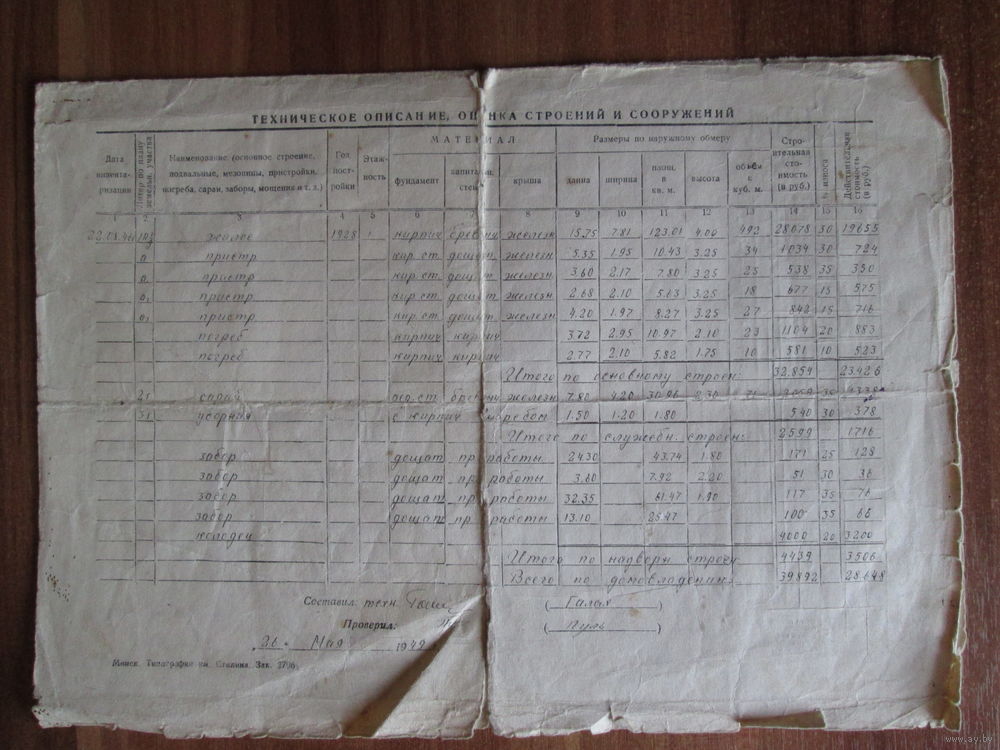 ТЕХНИЧЕСКОЕ ОПИСАНИЕ, ОЦЕНКА СТРОЕНИЙ И СООРУЖЕНИЙ
Дата инвентаризации Литер по плану земельн. участка Наименование (основное строение, подвальные, мезонины, пристройки, погреба, сараи, заборы, мощения и т. д.) Год постройки Этажность МАТЕРИАЛ фундамент капитальн. стен крыша Размеры по наружному обмеру длина ширина площ. в кв. м. высота объем в куб. м. Строительная стоимость (в руб.) % износа Действительная стоимость (в руб.)
1 2 3 4 5 6 7 8 9 10 11 12 13 14 15 16
22.08.46 жилое 1928 1 кирпич бревенч железн 15.75 7.81 123.01 4.00 492 28078 30 19655
пристр кир.ст. дощат. железн 5.35 1.95 10.43 3.25 34 1034 30 724
пристр кир.ст. дощат. железн 3.60 2.17 7.80 3.25 25 538 35 350
пристр. кир.ст. дощат. железн 2.68 2.10 5.63 3.25 18 677 15 575
пристр. кир.ст. дощат. железн 4.20 1.97 8.27 3.25 27 842 15 716
погреб кирпич кирпич 3.72 2.95 10.97 2.10 23 1104 20 883
погреб кирпич кирпич 2.77 2.10 5.82 1.75 10 581 10 523
Итого по основному строен: 32.854 23.426
бревенч железн 7.80 4.20 2.30 35
уборная с кирпич 1.50 1.20 1.80 540 30 378
Итого по служебн. строен: 2599 1716
забор дощат пр. работы 24.30 43.74 1.80 171 25 128
забор дощат пр. работы 3.60 7.92 2.20 51 30 36
забор дощат пр. работы 32.35 61.47 1.90 117 35 76
забор дощат пр. работы 13.10 25.47 100 35 66
колодец 4000 20 3200
Итого по надворн строен 4439 3506
Всего по домовладению 39892 28.648
Составил: техн. (Галых)
Проверил: (Пуль)
„26“ Мая 1949
Минск. Типография им. Сталина. Зак. 2706
www.ay.by